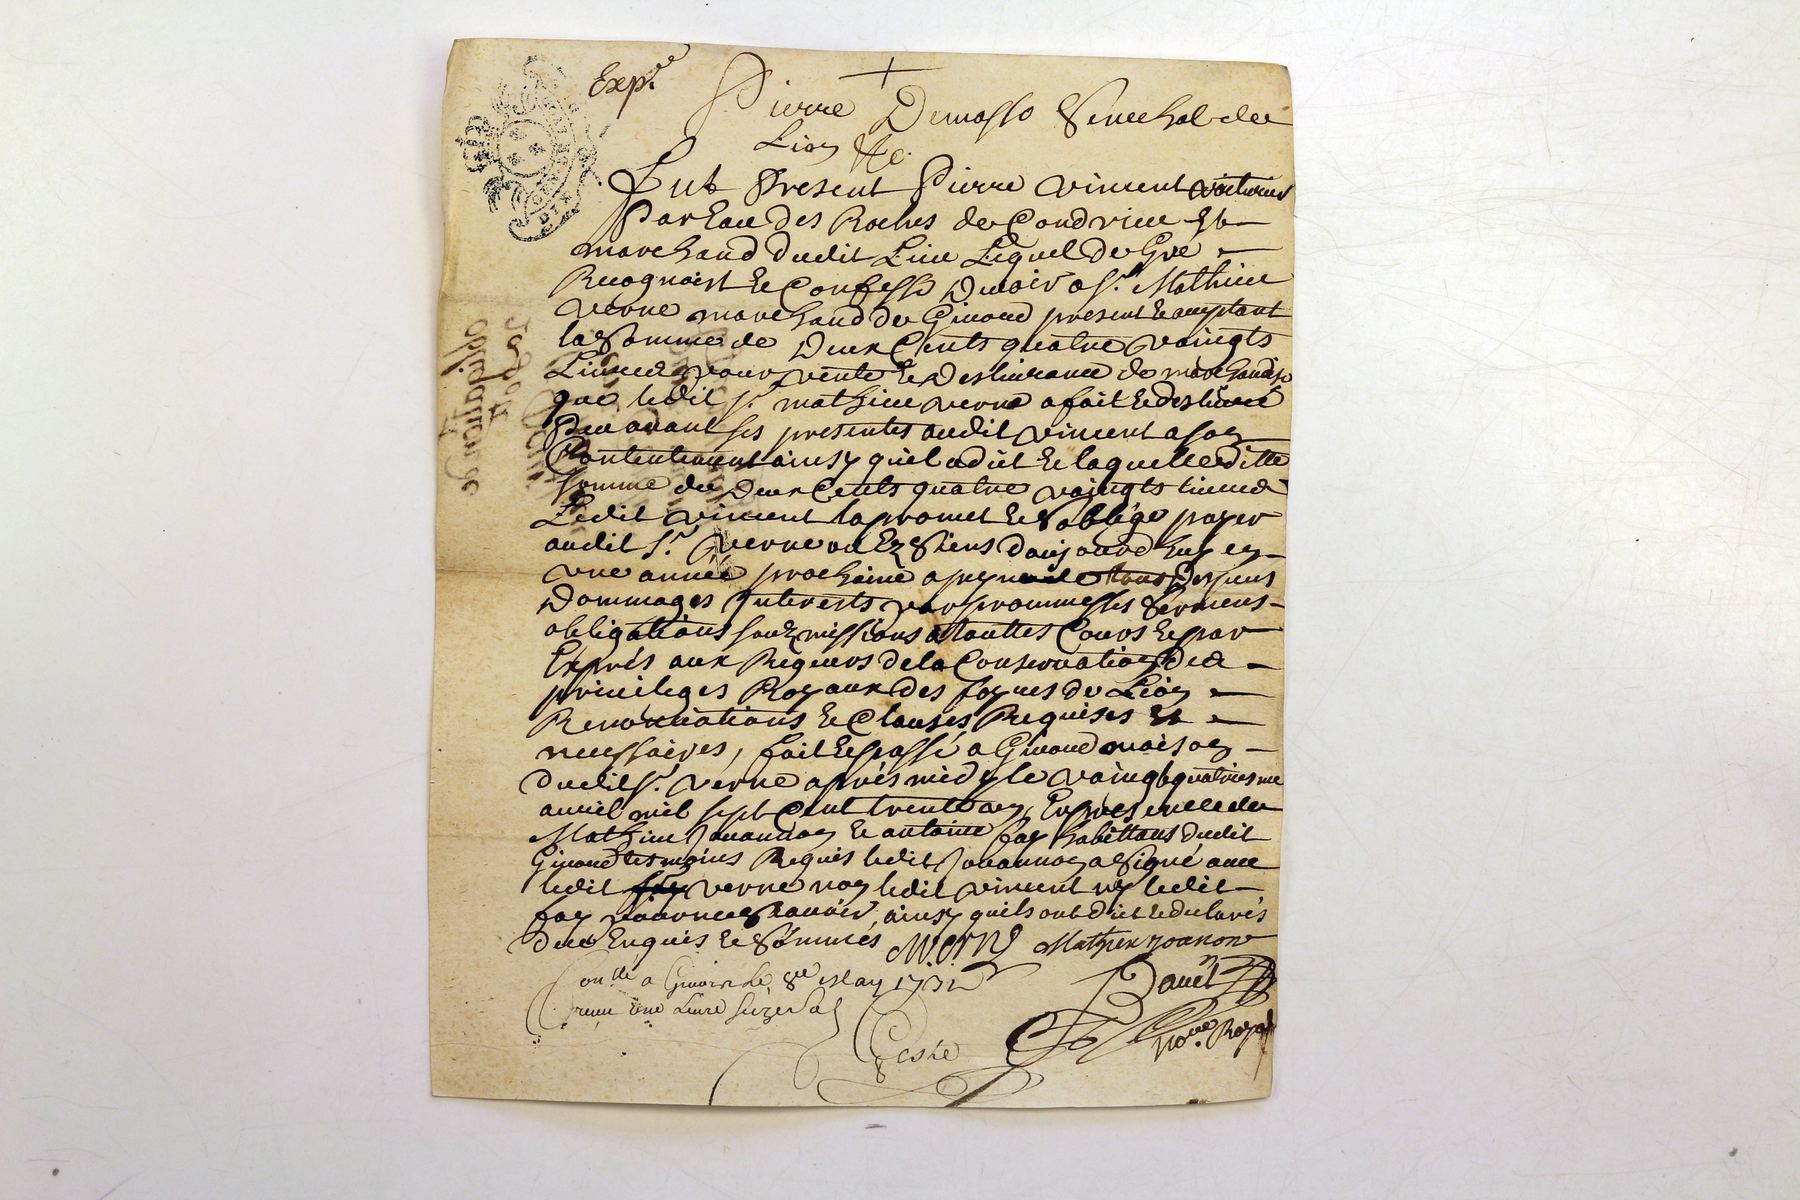 Exp.ée
Pierre Demasso Senechal de
Lion &c.
Fut Present Pierre vincent voiturier
Par Eau des Roches de Condrieu Et
marchand dudit Lieu Lequel de Gré
Recognoist Et Confesse Devoir a Sr. Mathieu
verne marchand de Givord present Et acceptant
la Somme de Deux Cents quatre vaingts
Livres pour vente Et Deslivrance de marchandise
que ledit Sr. mathieu verne a fait Et deslivré
Peu avant ses presentes audit vincent a son
Contentement ainsy quil a dict Et laquelle ditte
somme de Deux Cents quatre vaingts livres
Ledit vincent la promet Et S'obblige payer
audit Sr. verne ou Ez Siens D'aujourd'huy en
une année prochaine a peyne de tous Despens
Dommages Interests par prommesses Sermens
obligations soubzmissions a touttes Cours Et par
Exprés aux Rigeurs de la Conservation Des
privileges Royaux des foyres de Lion
Renonciations Et Clauses Requises Et
necessaires, fait Et passé a Givord maison
dudit Sr. verne aprés midy le vaingt quatriesme
avril mil sept Cent trente un, En presence de
Mathieu Jouannon Et antoine fay habittans dudit
Givord tesmoins Requis ledit Jouannon a Signé avec
ledit verne non ledit vincent ny ledit
fay pour ne Sçavoir ainsy quils ont dict Et declarés
de ce Enquis Et Sommés M. vern Mathieu Joanon
Con.llé a Givors le 8e May 1731
receu une Livre seize sols
Bauel
No.re Royal
obligation de